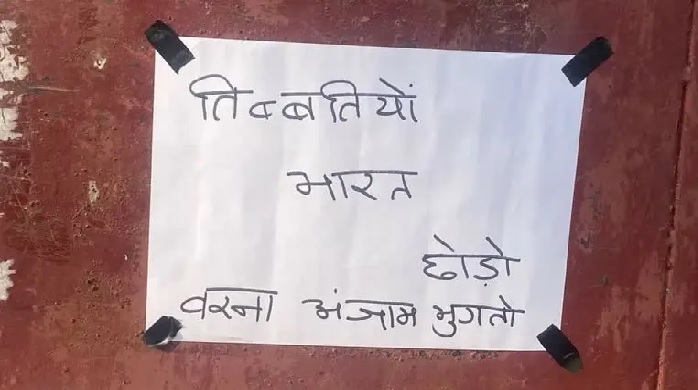 तिब्बतियों
भारत
छोड़ो
वरना अंजाम भुगतो